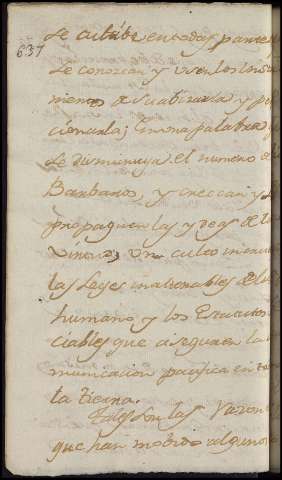 637
se cultibe en todas partes
se conozcan y usen los instru
mentos de su labranza y per
cionarla; en una palabra q
se disminuya el numero de
Barbaros, y crezcan y se
propaguen las ydeas de
un culto
las Leyes inalterables del
humano y los
ciables que aseguren la
municacion pacifica en toda
la tierra.
Tales son las
que han movido algunos